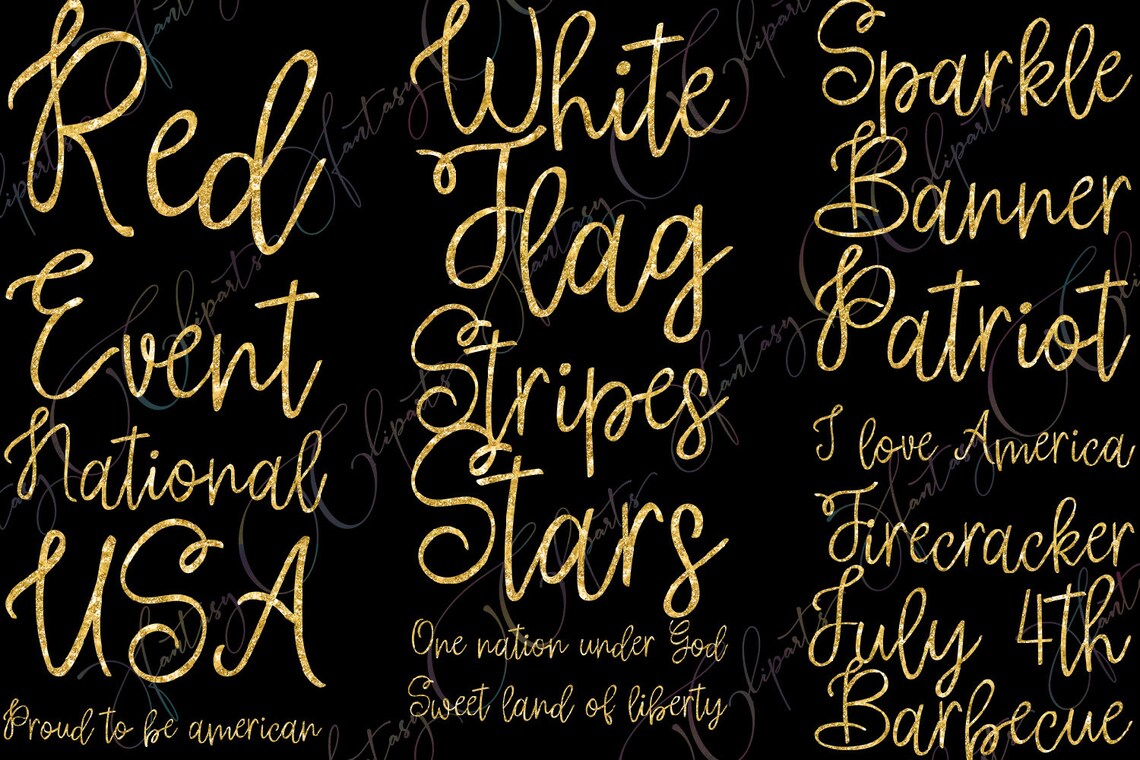 Red
Event
National
USA
Proud to be american
White
Flag
Stripes
Stars
One nation under God
Sweet land of liberty
Sparkle
Banner
Patriot
I love America
Firecracker
July 4th
Barbecue
fantasy
Cliparts